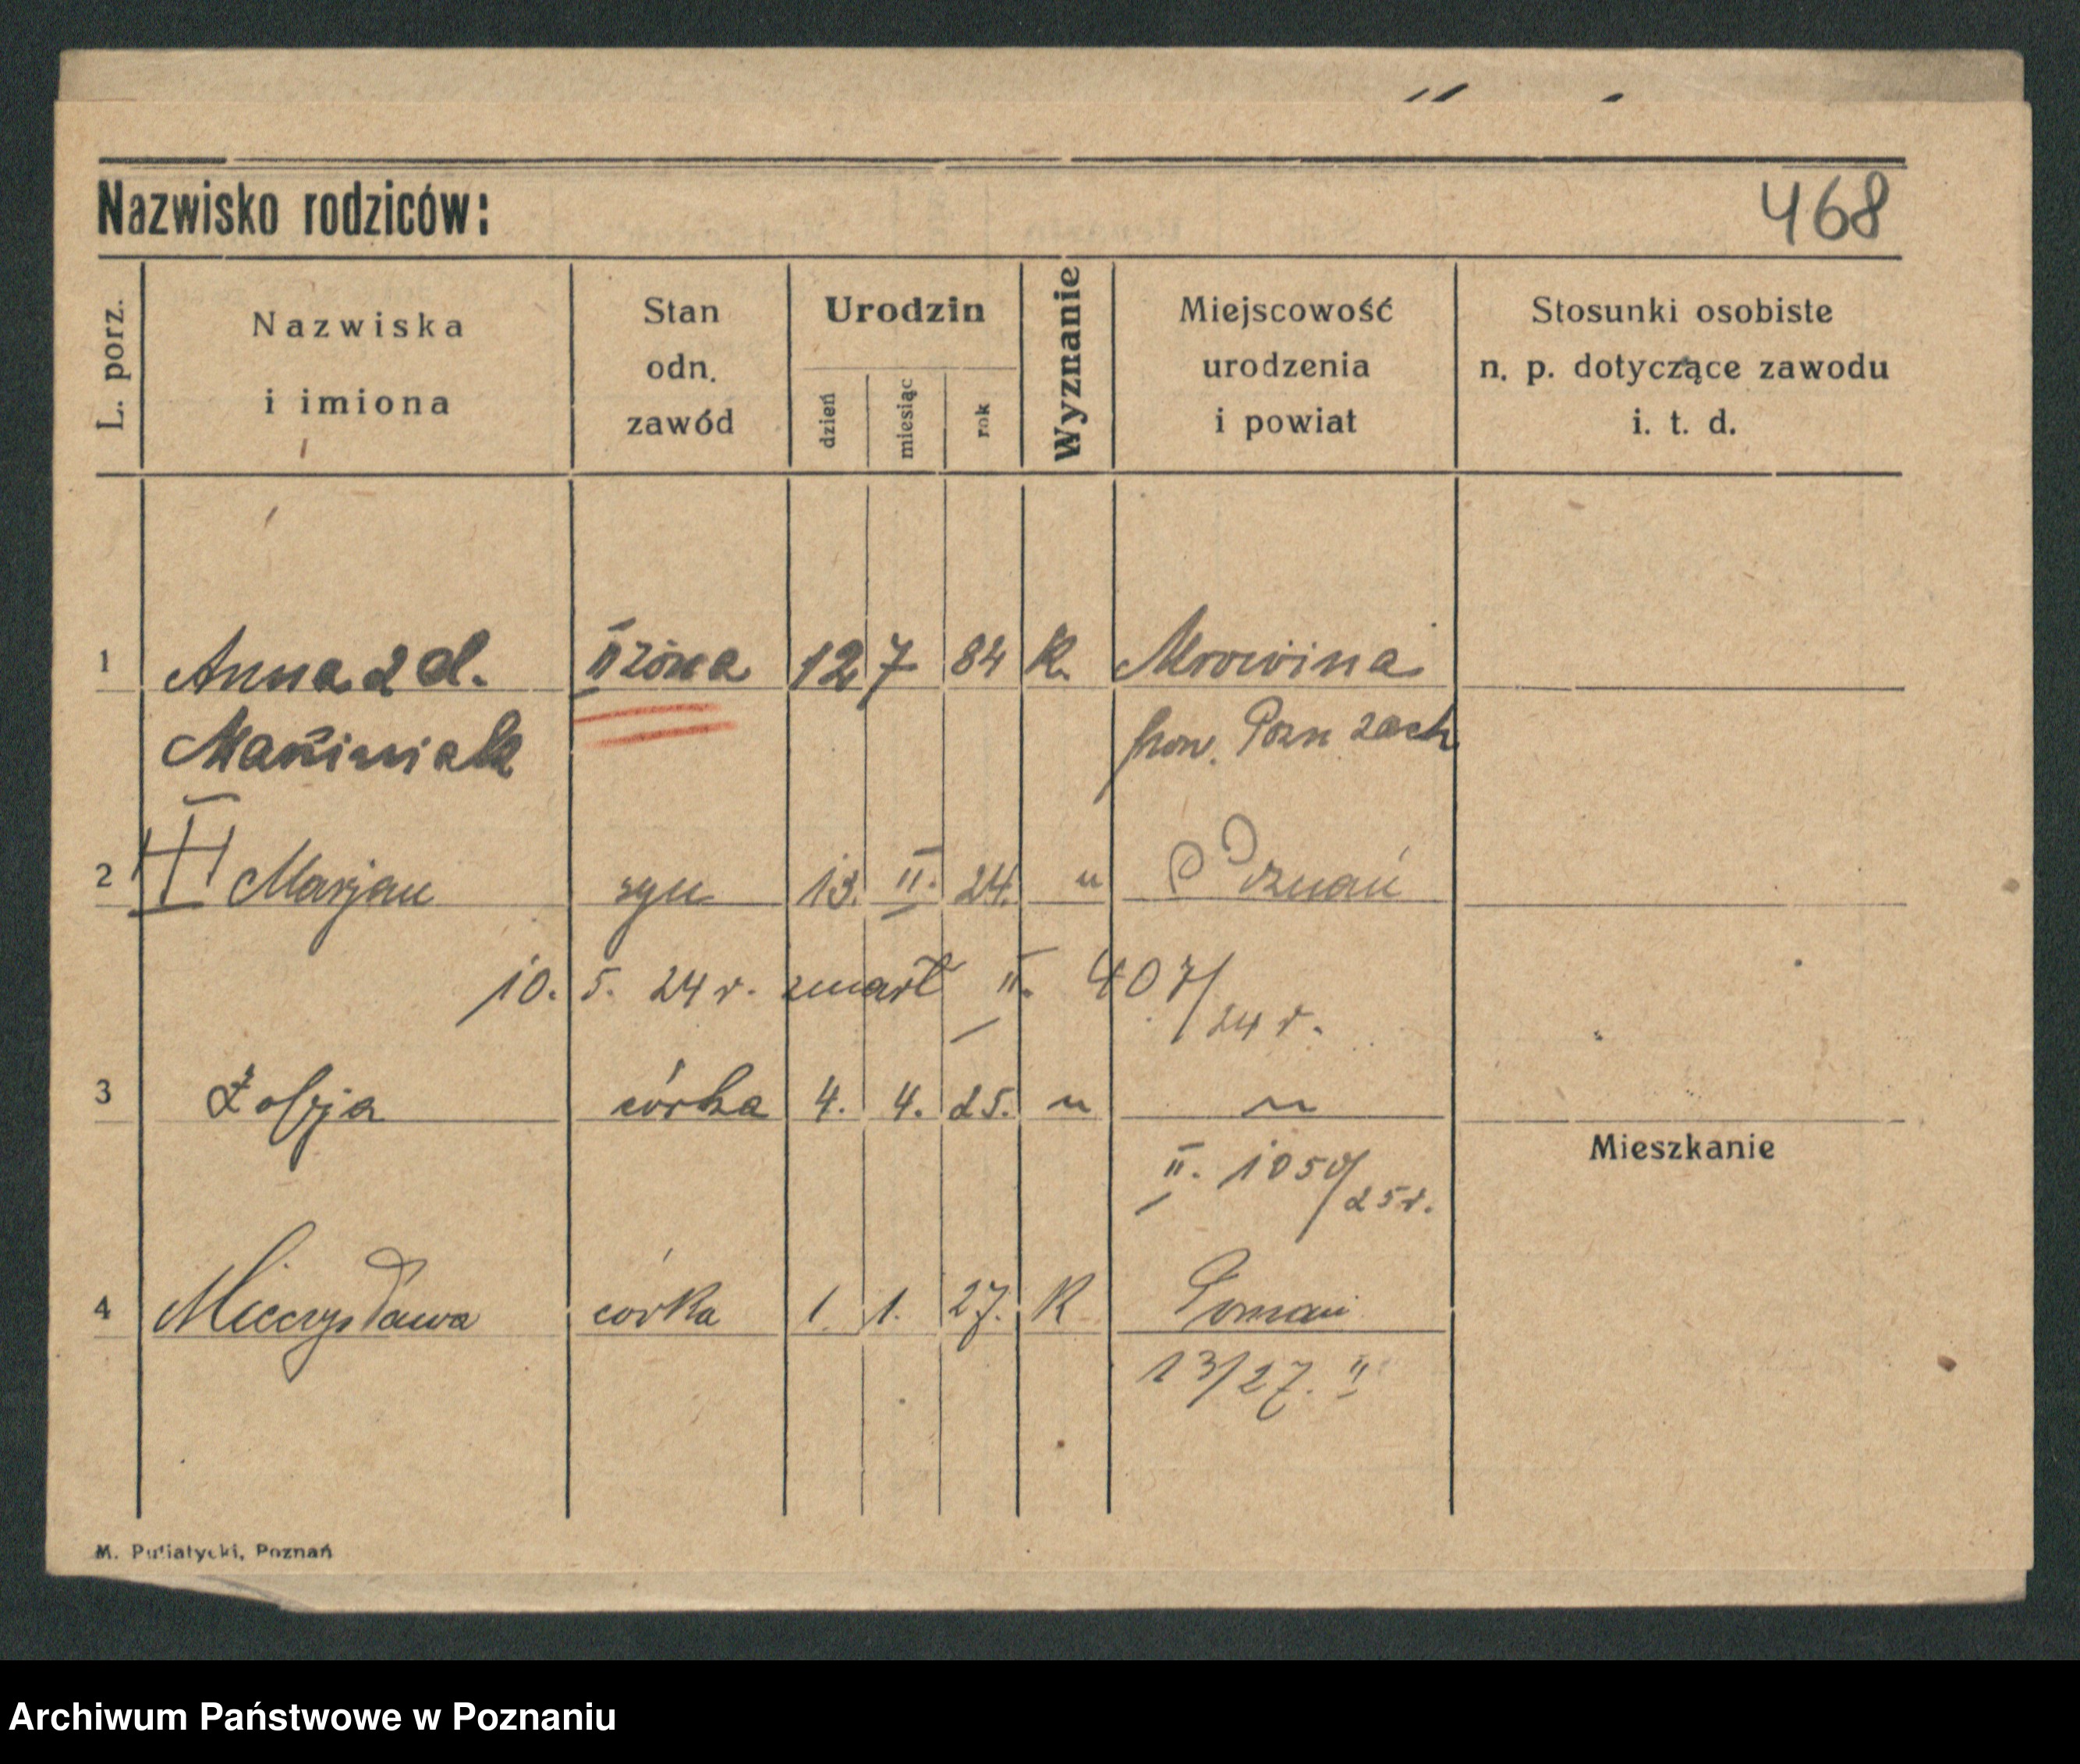 Nazwisko rodziców: 468
L. porz. Nazwiska i imiona Stan odn. zawód Urodzin dzień miesiąc rok Wyznanie Miejscowość urodzenia i powiat Stosunki osobiste n. p. dotyczące zawodu i. t. d.
1 Anna z d. II żona 12 7 84 K. Mrowina
pow. Pozn zach
2 Marjan syn 13. II. 24. " Poznań
10. 5. 24 r. zmarł II. 407/24 r.
3 Zofja córka 4. 4. 25. " "
Mieszkanie
II. 1050/25 r.
4 Mieczysława córka 1. 1. 27. K Poznań
13/27. II
M. Putiatycki, Poznań
Archiwum Państwowe w Poznaniu